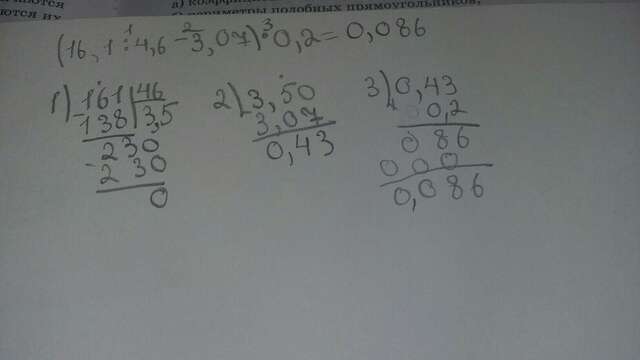 а) коэффици
подобных прямоугольников,
(16,1 : 4,6 - 3,07) · 0,2 = 0,086
1) 161 | 46
138 | 3,5
230
230
0
2) 3,50
3,07
0,43
3) 0,43
0,2
086
000
0,086